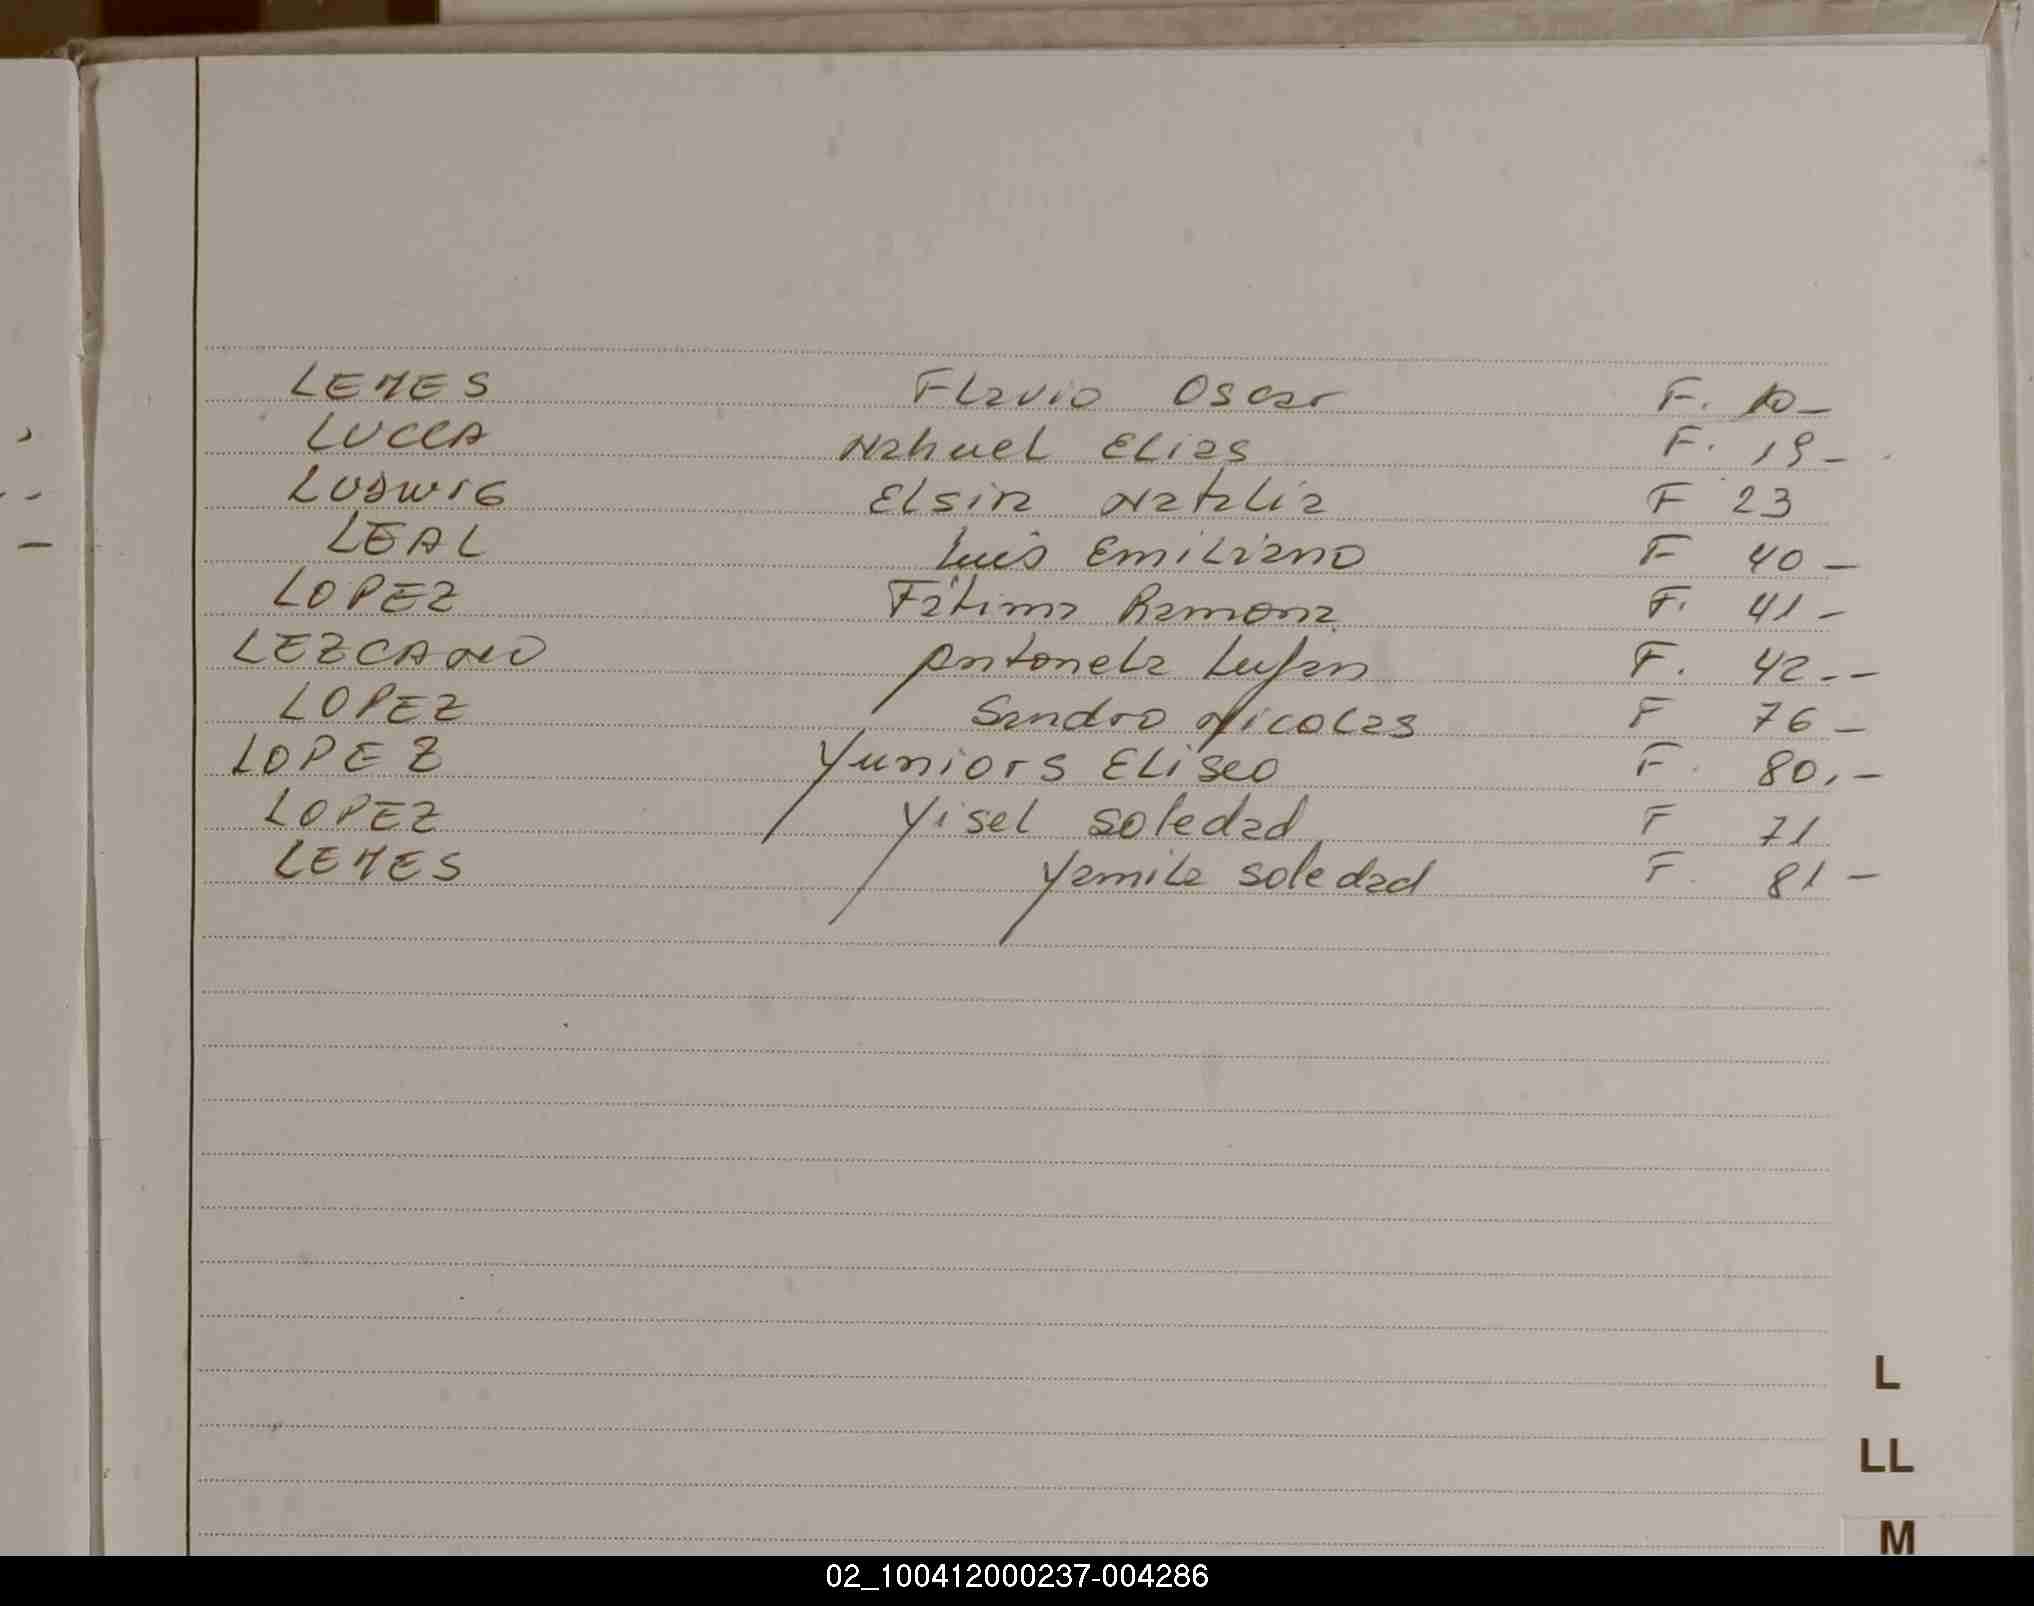 LEMES Flavio Oscar F. 10-
LUCCA Nahuel Elias F. 19-
LUDWIG Elsira Natalia F 23
LEAL Luis Emiliano F 40-
LOPEZ Fátima Ramona F. 41-
LEZCANO Antonela Lujan F. 42.--
LOPEZ Sandro Nicolas F 76-
LOPEZ Yuniors Eliseo F. 80.-
LOPEZ Yisel Soledad F 71
LEMES Yamila Soledad F. 81-
L
LL
M
02_100412000237-004286